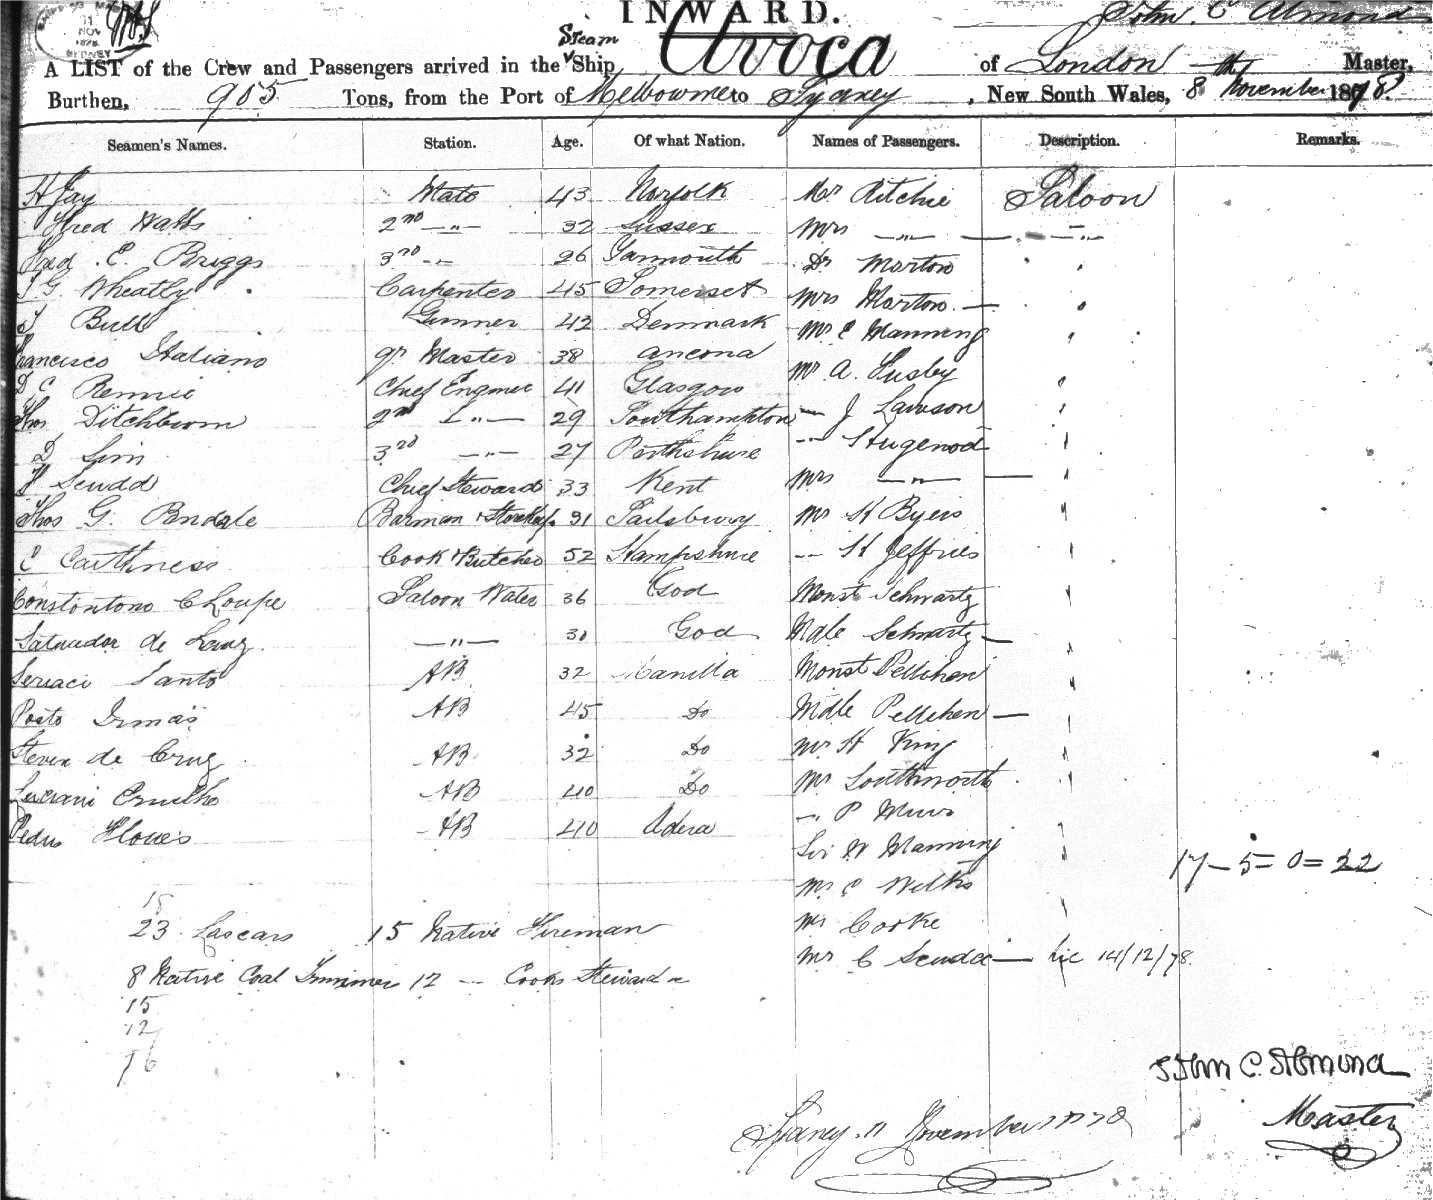 INWARD.
11 NOV 1878 SYDNEY
John C Almond
A LIST of the Crew and Passengers arrived in the Steam Ship Avoca of London Master,
Burthen, 905 Tons, from the Port of Melbourne to Sydney, New South Wales, 8th November 1878.
Seamen's Names. Station. Age. Of what Nation. Names of Passengers. Description. Remarks.
H Jay Mate 43 Norfolk Mr Ritchie Saloon
Fred Watts 2nd —"— 32 Sussex Mrs —"— —"—
Fred . E. Briggs 3rd -"- 26 Yarmouth Dr Morton "
G. Wheatly Carpenter 45 Somerset Mrs Morton "
Bull Gunner 42 Denmark Mr E Manning "
Francisco Italiano qr Master 38 Ancona Mr A. "
D C Rennie Chief Engineer 41 Glasgow
Thos Ditchburn 2nd —"— 29 Southampton — J Lawson "
D Sim 3rd —"— 27 Perthshire — Hugenod "
Scudd Chief Steward 33 Kent Mrs —"— "
Thos G. Barman & Storekeep. 31 Salsbury Mr H Byers "
C Caithness Cook & Butcher 52 Hampshire -- H Jeffries "
Saloon Water 36 God Monst Schwartz "
de —"— 30 God Mdle Schwartz "
Santo AB 32 Manilla Monst Pellihen "
AB 45 Do Mdle Pellihen "
Steven de Cruz AB 32 Do Mr H King "
AB 40 Do Mr Southworth "
AB 40 — P
Sir W Manning "
17 – 5 = 0 = 22
Mr C Wilks
18
23 Lascars 15 Native Fireman Mr Cooke
Mr C — 14/12/78
8 Native Coal Trimmer 12 -- Cooks Steward
15
12
76
John C. Almond
Master
Sydney 11 November 1878